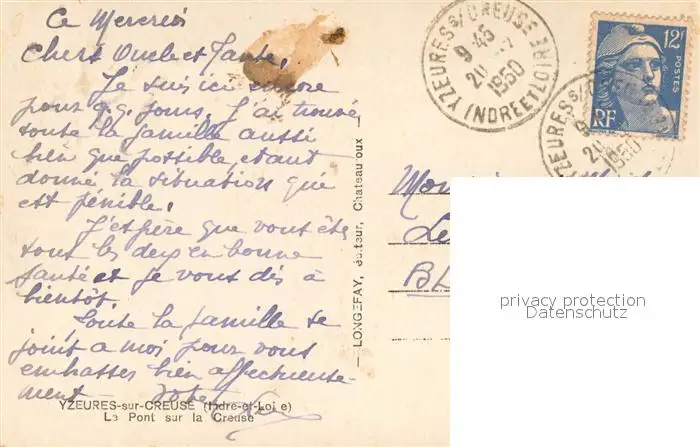 Ce Mercredi
Chers Oncle et Tante,
Je suis ici encore
pour q.q. jours. J'ai trouvé
toute la famille aussi
bien que possible, étant
donné la situation qui
est pénible.
J'espère que vous êtes
tous les deux en bonne
santé et je vous dis à
bientôt.
Toute la famille se
joint à moi pour vous
embrasser bien affectueuse-
ment
YZEURES-sur-CREUSE (Indre-et-Loire)
Le Pont sur la Creuse
LONGEFAY, éditeur, Chateauroux
YZEURES S/ CREUSE
9 45
20
1950
INDRE ET LOIRE
12F
POSTES
RF
YZEURES S/
20
1950
privacy protection
Datenschutz